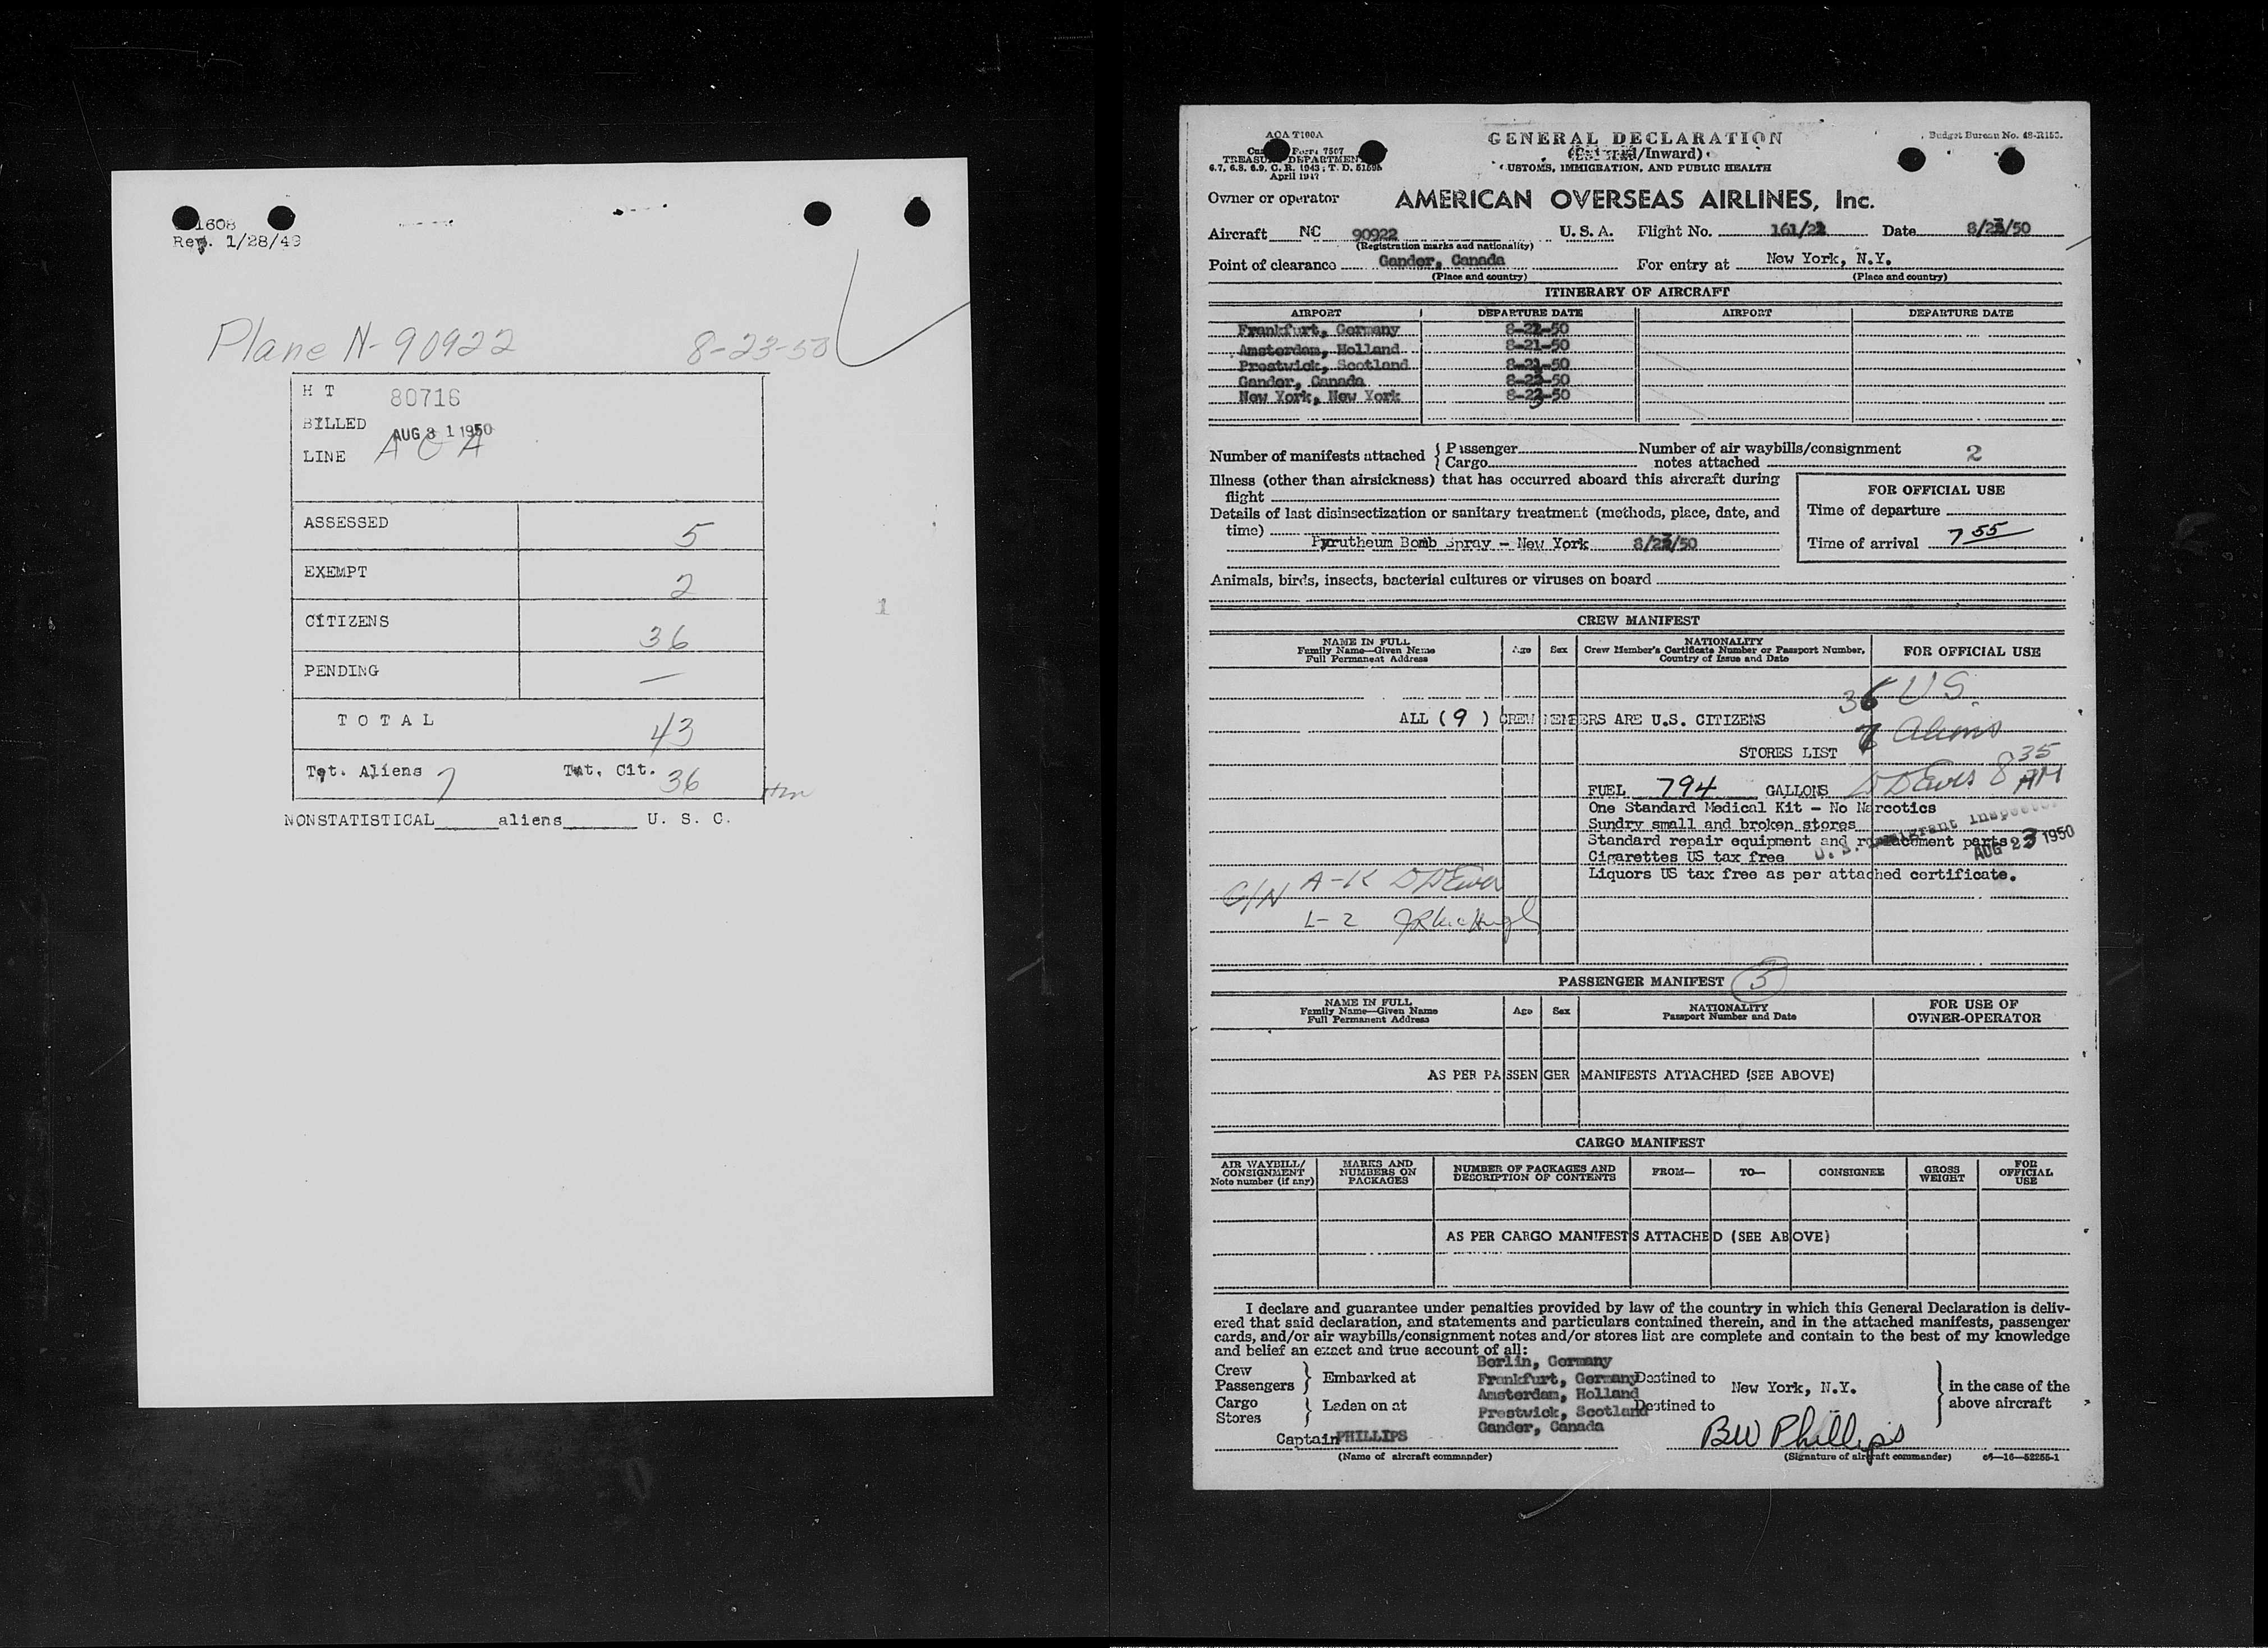 1608
Rev. 1/28/49
Plane N-90922 8-23-50
H T 80716
BILLED AUG 31 1950
LINE A O A
ASSESSED 5
EXEMPT 2
CITIZENS 36
PENDING —
T O T A L 43
Tot. Aliens 7 Tot. Cit. 36
NONSTATISTICAL aliens U. S. C.
1
AOA T100A
Form 7507
TREASURY DEPARTMENT
6.7, 6.8, 6.9, C. R. 1943; T. D.
April 1947
GENERAL DECLARATION
(Outward/Inward)
CUSTOMS, IMMIGRATION, AND PUBLIC HEALTH
Budget Bureau No. 48-R153.
Owner or operator AMERICAN OVERSEAS AIRLINES, Inc.
Aircraft NC 90922 U. S. A. Flight No. 161/22 Date 8/23/50
(Registration marks and nationality)
Point of clearance Gander, Canada For entry at New York, N.Y.
(Place and country) (Place and country)
ITINERARY OF AIRCRAFT
AIRPORT DEPARTURE DATE AIRPORT DEPARTURE DATE
Frankfurt, Germany 8-22-50
Amsterdam, Holland 8-21-50
Prestwick, Scotland 8-21-50
Gander, Canada 8-23-50
New York, New York 8-23-50
Number of manifests attached { Passenger Number of air waybills/consignment
{ Cargo notes attached 2
Illness (other than airsickness) that has occurred aboard this aircraft during
flight
FOR OFFICIAL USE
Time of departure
Time of arrival 7 55
Details of last disinsectization or sanitary treatment (methods, place, date, and
time)
Pyrutheum Bomb Spray - New York 8/23/50
Animals, birds, insects, bacterial cultures or viruses on board
CREW MANIFEST
NAME IN FULL
Family Name—Given Name
Full Permanent Address
Age Sex
NATIONALITY
Crew Member's Certificate Number or Passport Number,
Country of Issue and Date
FOR OFFICIAL USE
36 US
ALL (9) CREW MEMBERS ARE U.S. CITIZENS
7 Aliens
STORES LIST
FUEL 794 GALLONS
8 35 AM
One Standard Medical Kit - No Narcotics
Sundry small and broken stores
Standard repair equipment and replacement parts
Cigarettes US tax free
Liquors US tax free as per attached certificate.
U. S. Immigrant Inspector
AUG 23 1950
A-K
PASSENGER MANIFEST
NAME IN FULL
Family Name—Given Name
Full Permanent Address
Age Sex
NATIONALITY
Passport Number and Date
FOR USE OF
OWNER-OPERATOR
AS PER PASSENGER MANIFESTS ATTACHED (SEE ABOVE)
CARGO MANIFEST
AIR WAYBILL/
CONSIGNMENT
Note number (if any)
MARKS AND
NUMBERS ON
PACKAGES
NUMBER OF PACKAGES AND
DESCRIPTION OF CONTENTS
FROM— TO— CONSIGNEE
GROSS
WEIGHT
FOR
OFFICIAL
USE
AS PER CARGO MANIFESTS ATTACHED (SEE ABOVE)
I declare and guarantee under penalties provided by law of the country in which this General Declaration is deliv-
ered that said declaration, and statements and particulars contained therein, and in the attached manifests, passenger
cards, and/or air waybills/consignment notes and/or stores list are complete and contain to the best of my knowledge
and belief an exact and true account of all:
Crew
Passengers } Embarked at
Cargo
Stores } Laden on at
Berlin, Germany
Frankfurt, Germany Destined to New York, N.Y.
Amsterdam, Holland
Prestwick, Scotland Destined to
Gander, Canada
} in the case of the
above aircraft
Captain PHILLIPS BW Phillips
(Name of aircraft commander) (Signature of aircraft commander) 16—52255-1